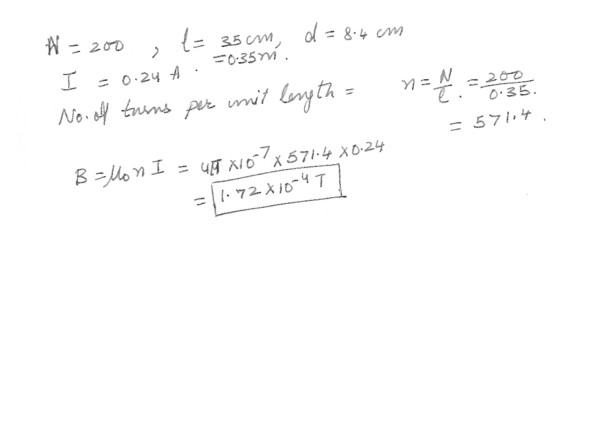 N = 200 , l = 35 cm, d = 8.4 cm
= 0.35m.
I = 0.24 A.
No. of turns per unit length = n = N/l. = 200/0.35.
= 571.4.
B = μ₀ n I = 4π × 10⁻⁷ × 571.4 × 0.24
= 1.72 × 10⁻⁴ T